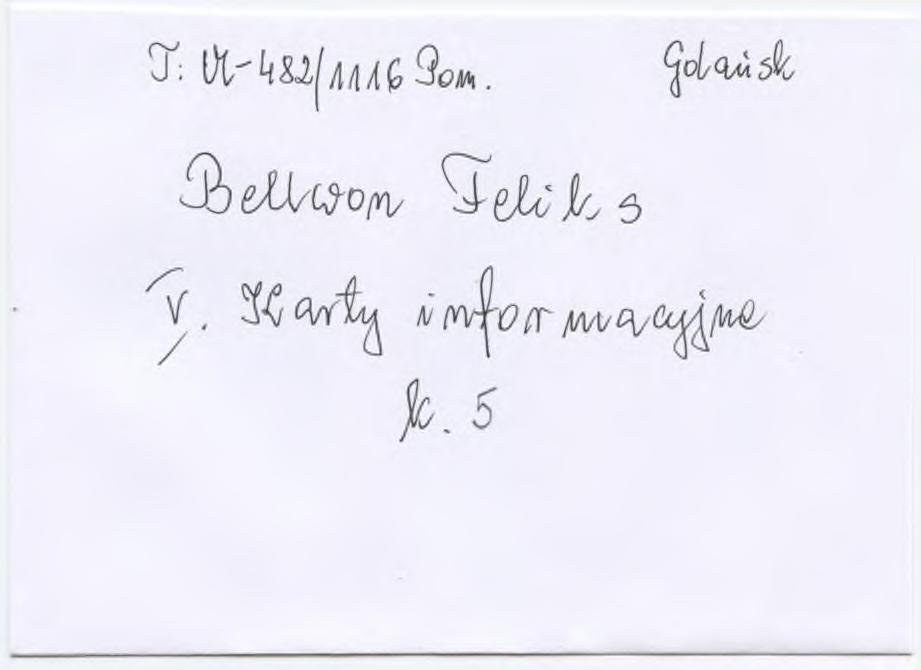 T: M-482/1116 Pom. Gdańsk
Bellwon Feliks
V. Karty informacyjne
k. 5